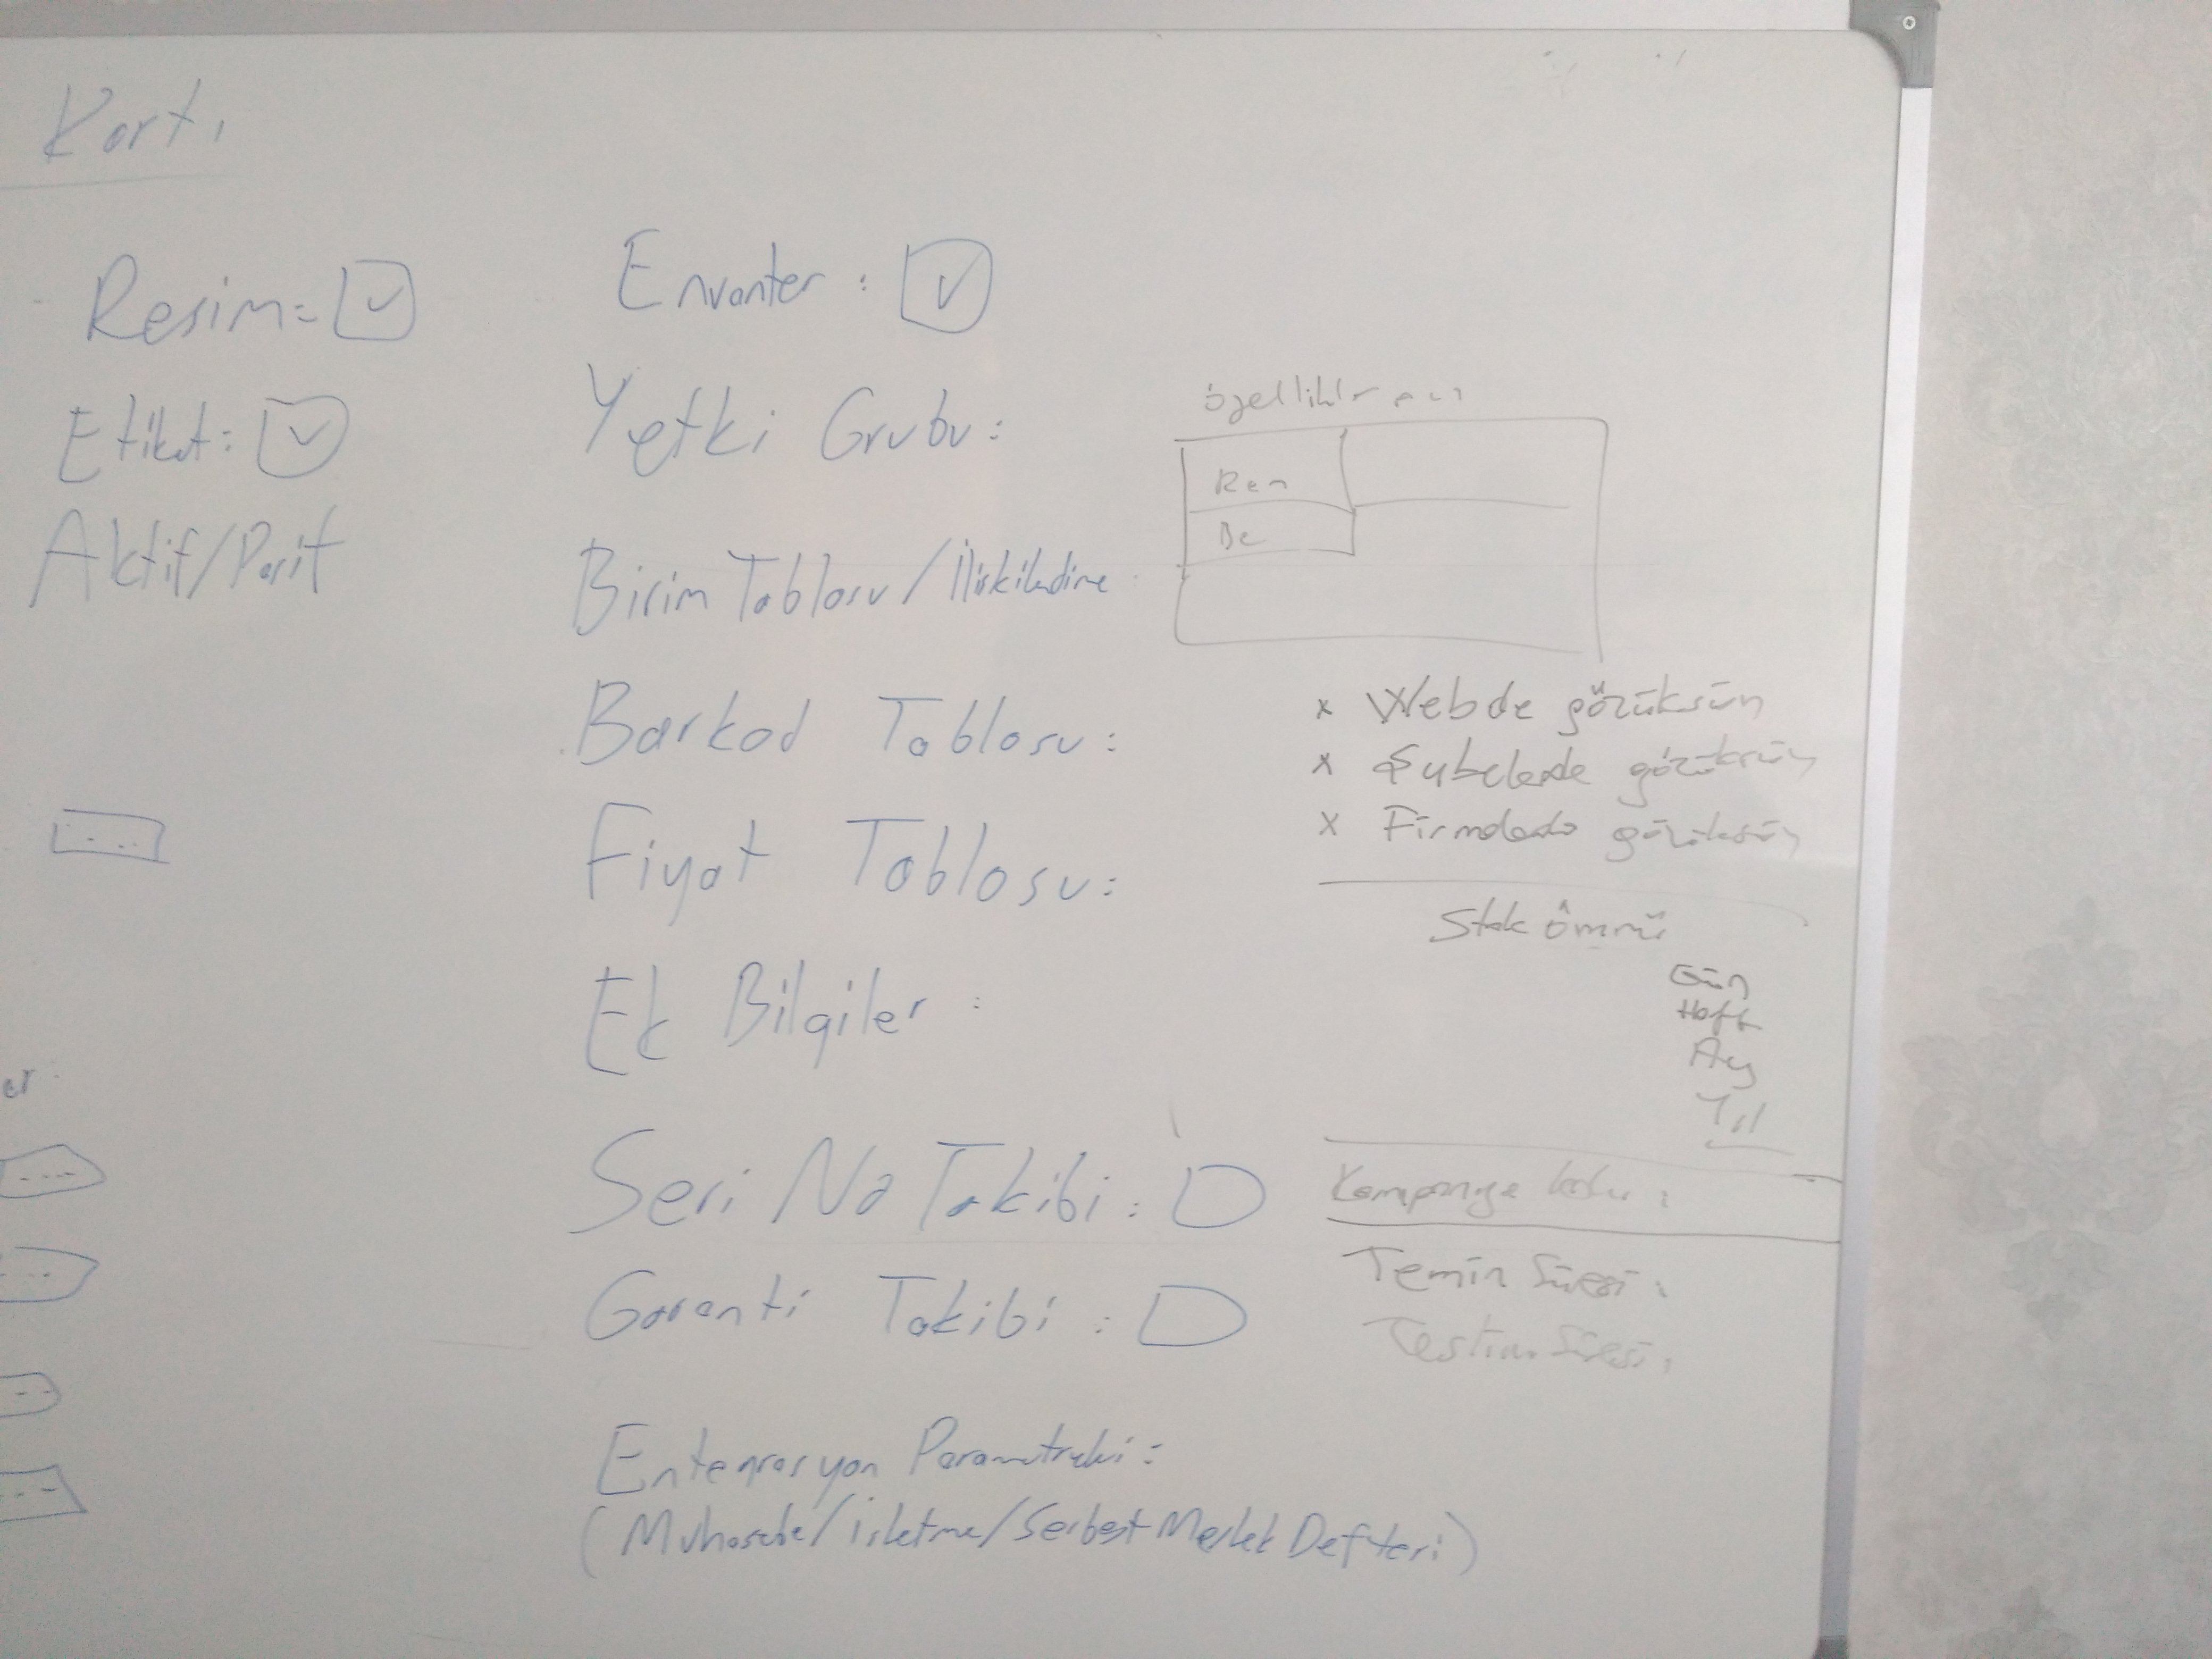 Kartı
Resim=
Etiket:
Aktif/Pasif
er
Envanter :
Yetki Grubu :
Birim Tablosu / İlişkilendirme
Barkod Tablosu :
Fiyat Tablosu :
Ek Bilgiler :
Seri No Takibi :
Garanti Takibi :
Entegrasyon Parametreleri :
(Muhasebe/işletme/Serbest Meslek Defteri)
Ren
Be
x Webde gözüksün
x Şubelerde gözüksün
x Firmalarda gözüksün
Stok ömrü
Gün
Haft
Ay
Yıl
Kampanya kodu :
Temin Süresi :
Süresi :